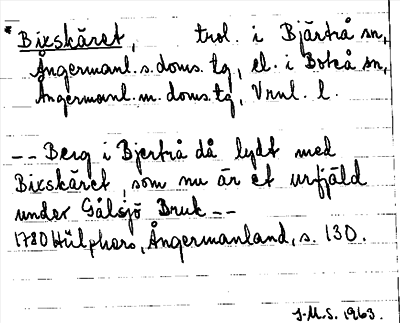 * Bixskäret, trol. i Bjärtrå sn,
Ångermanl. s. doms. tg, el. i Boteå sn,
Ångermanl. m. doms. tg, Vrnl. l.
-- Berg i Bjertrå då lydt med
Bixskäret, som nu är et urfjäld
under Gålsjö Bruk --
1780 Hülphers, Ångermanland, s. 130.
J.M.S. 1963.